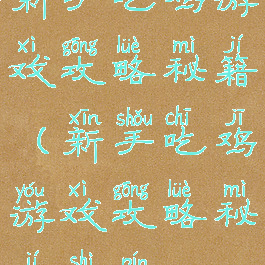 新手吃鸡游
xì gōng lüè mì jí
戏攻略秘籍
xīn shǒu chī jī
(新手吃鸡
yóu xì gōng lüè mì
游戏攻略秘
jí shì pín